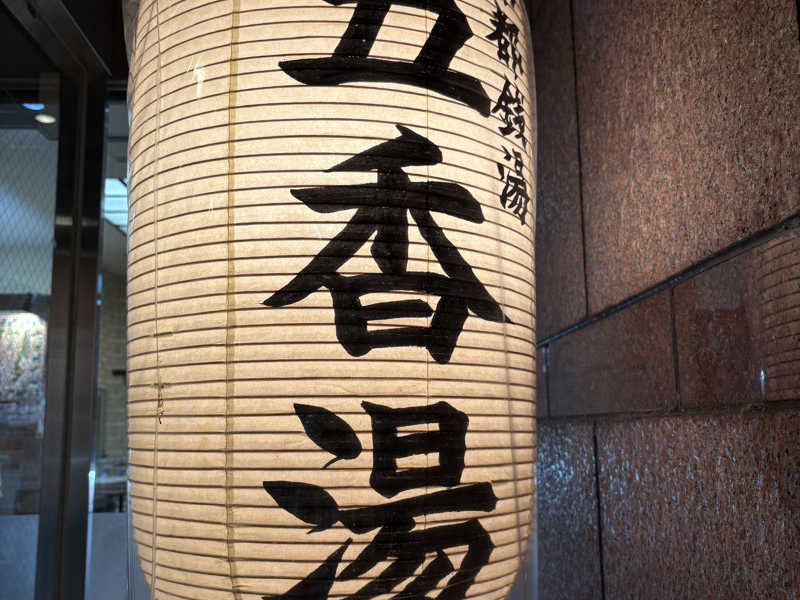 五香湯
都銭湯